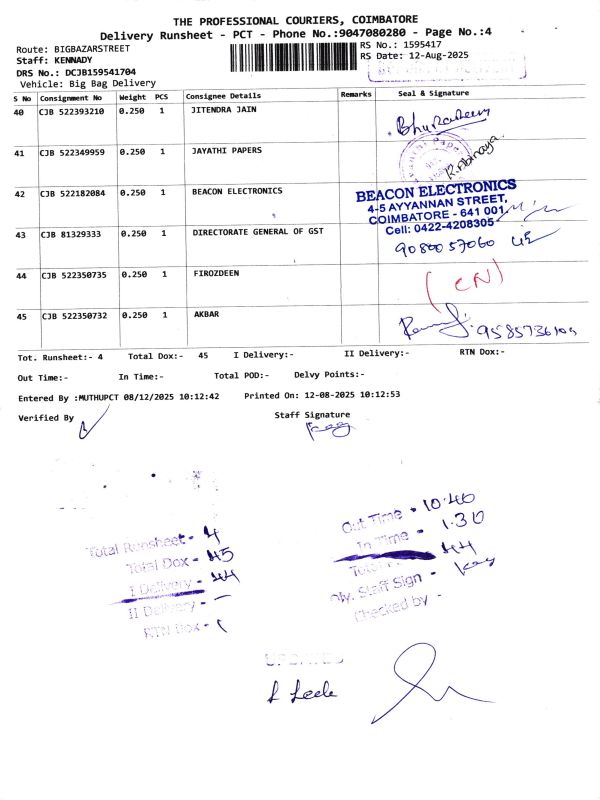 THE PROFESSIONAL COURIERS, COIMBATORE
Delivery Runsheet - PCT - Phone No.:9047080280 - Page No.:4
Route: BIGBAZARSTREET
RS No.: 1595417
Staff: KENNADY
RS Date: 12-Aug-2025
DRS No.: DCJB159541704
Vehicle: Big Bag Delivery
S No Consignment No Weight PCS Consignee Details Remarks Seal & Signature
40 CJB 522393210 0.250 1 JITENDRA JAIN
41 CJB 522349959 0.250 1 JAYATHI PAPERS
R.Abinaya
42 CJB 522182084 0.250 1 BEACON ELECTRONICS
BEACON ELECTRONICS
4-5 AYYANNAN STREET,
COIMBATORE - 641 001
Cell: 0422-4208305
43 CJB 81329333 0.250 1 DIRECTORATE GENERAL OF GST
9080057060
44 CJB 522350735 0.250 1 FIROZDEEN
(CN)
45 CJB 522350732 0.250 1 AKBAR
Tot. Runsheet:- 4 Total Dox:- 45 I Delivery:- II Delivery:- RTN Dox:-
Out Time:- In Time:- Total POD:- Delvy Points:-
Entered By :MUTHUPCT 08/12/2025 10:12:42 Printed On: 12-08-2025 10:12:53
Verified By Staff Signature
Total Runsheet - 4
Total Dox - 45
I Delivery - 44
II Delivery - –
RTN Dox - 1
Out Time - 10.40
In Time - 1.30
44
Dly. Staff Sign -
Checked by -
UPDATED